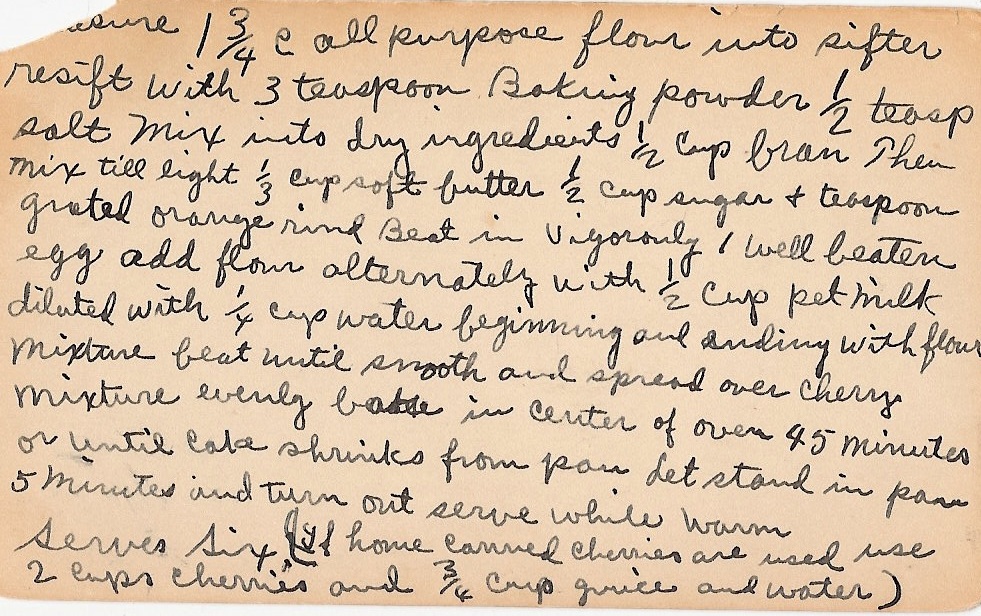 asure 1 3/4 c all purpose flour into sifter
resift with 3 teaspoon Baking powder 1/2 teasp
salt Mix into dry ingredients 1/2 cup bran Then
Mix till light 1/3 cup soft butter 1/2 cup sugar + teaspoon
grated orange rind Beat in Vigorouly 1 well beaten
egg add flour alternately with 1/2 Cup pet milk
diluted with 1/4 cup water beginning and ending with flour
Mixture beat until smooth and spread over cherry
Mixture evenly bake in center of oven 45 Minutes
or until cake shrinks from pan Let stand in pan
5 Minutes and turn out serve while warm
Serves Six (If home canned cherries are used use
2 cups cherries and 3/4 cup guice and water)